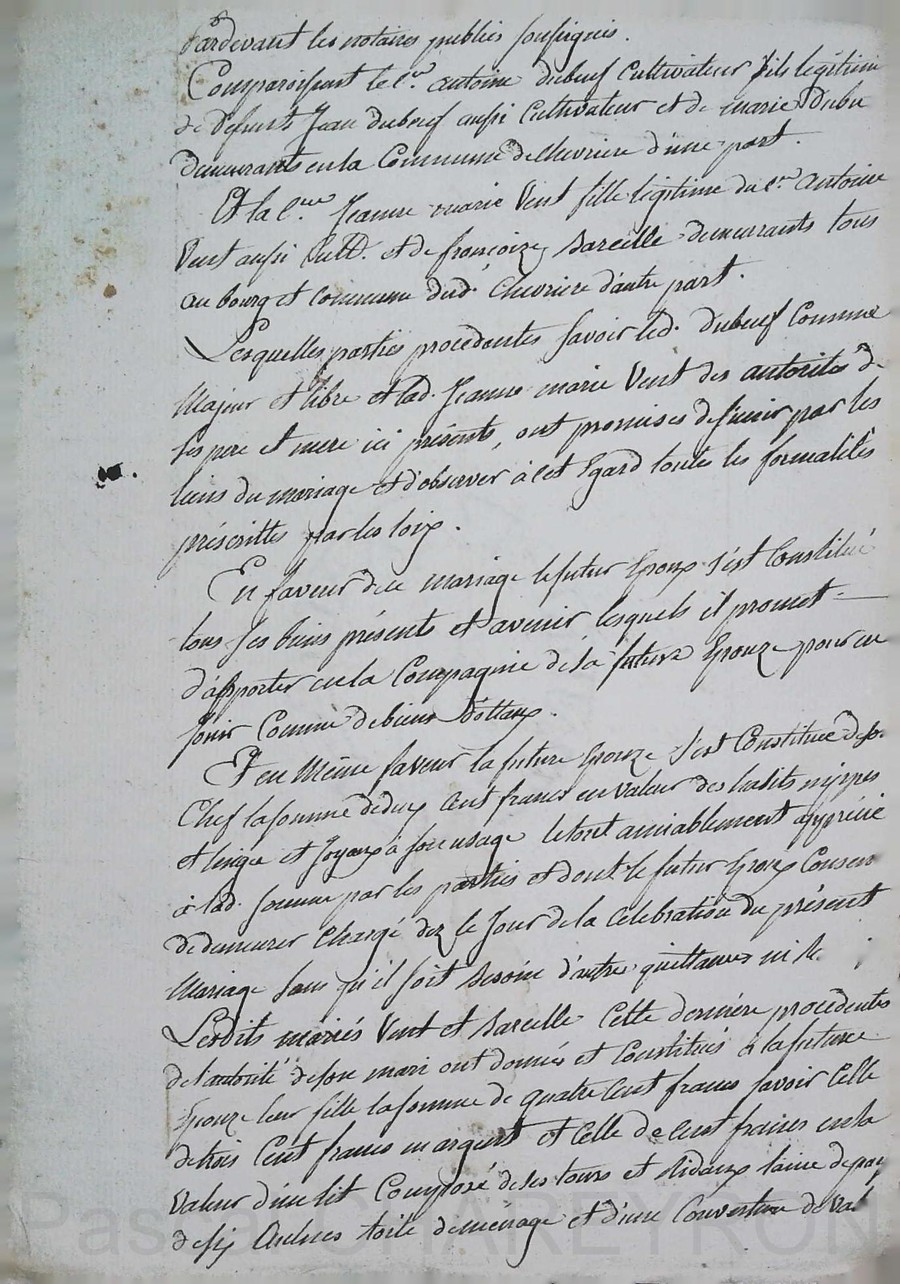 Pardevant les notaires publics soussignés.
Comparoissent le c.en antoine duboeuf cultivateur fils légitime
de defunts Jean duboeuf aussi Cultivateur et de marie Dubu
demeurants en la Commune de Chevriere d'une part.
Et la c.ne Jeanne marie Vent fille legitime du c.en antoine
Vent aussi Cult. et de francoize Bareille demeurants tous
au bourg et commune dud. Chevriere d'autre part.
Lesquelles parties procedantes Savoir led. duboeuf Comme
Majeur et libre et lad. Jeanne marie Vent des autorités de
Ses pere et mere ici présents, ont promises de s'unir par les
liens du mariage et d'observer à cet Egard toutes les formalités
préscrittes par les loix.
En faveur de ce mariage le futur Epoux s'est Constitué
tous ses biens présents et avenir lesquels il promet
d'apporter en la Compagnie de la future Epouze pour en
Jouir Comme de biens dottaux.
Et en Même faveur la future Epouze s'est Constituée de son
Chef la somme de deux cent francs en valeur des habits nippes
et linge et Joyaux à son usage le tout amiablement apprécié
à lad. somme par les parties et dont le futur Epoux Consent
de demeurer Chargé dez le Jour de la Celebration du présent
Mariage sans qu'il soit Besoin d'autre quittances ni
Lesdits mariés Vent et Bareille Cette derniére procedentes
de l'autorité de son mari ont donnés et Constitués à la future
Epouze leur fille la somme de quatre cent francs savoir Celle
de trois Cent francs en argent et Celle de Cent francs en la
Valeur d'un lit Composé de ses tours et Ridaux laine de pay
de six Aulnes toile de ménage et d'une Couverture de Val
Pascal CHAREYRON